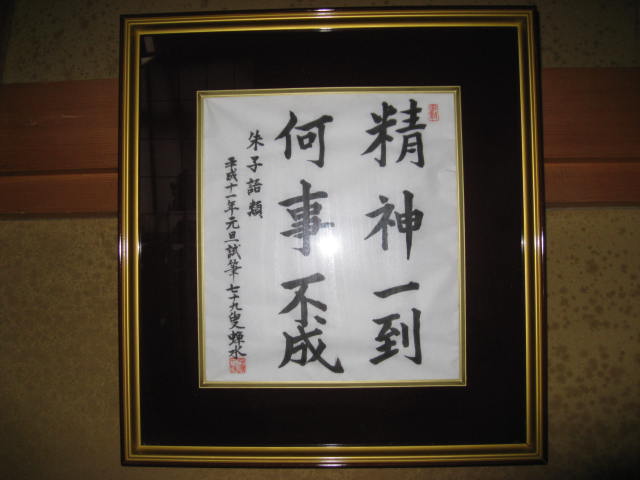 精神一到
何事不成
朱子語類
平成十一年元旦試筆 七十九叟蝉水